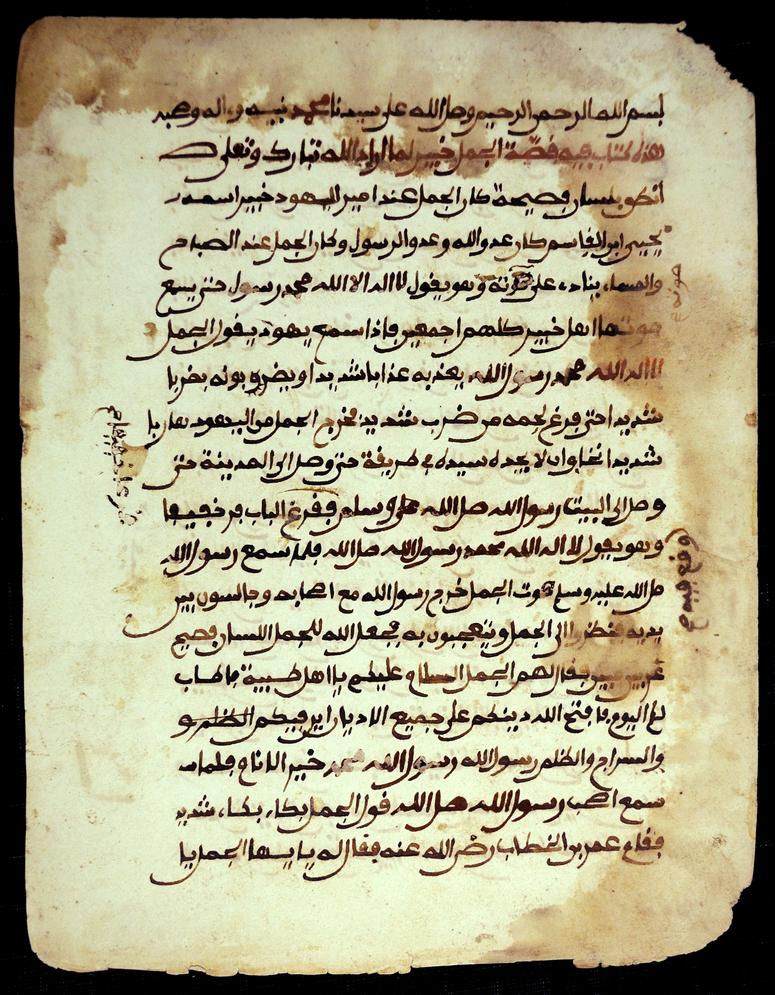 بسم الله الرحمن الرحيم وصل الله على سيدنا محمد نبيه وءاله وصحبه
هذه كتاب فيه قصة الجمل خبير لما اراد الله تبارك وتعلى
انكو بلسان فصيحة كان الجمل عند امير اليهود خبير اسمه
يحيى ابن القاسم كان عدو الله وعدو الرسول وكان الجمل عند الصباح
والمساء ينادء على صوته وهو يقول لا اله الا الله محمد رسول حتى يسمع
صوتها اهل خبير كلهم اجمعين فاذا سمع يهود يقول الجمل
لا اله الله محمد رسول الله يعذبه عذابا شديدا ويضربونه بضربا
شديدا حتى يرغ لحمه من ضرب شديد فخرج الجمل من اليهود هاربا
شديدا لا يجده سيده في طريقة حتى وصل الى المدينة حتى
وصل الى البيت رسول الله صل الله علي وسلم ففرغ الباب
وهو يقول لا اله الله محمد رسول الله صل الله فلما سمع رسول الله
صل الله عليه وسلم صوت الجمل خرج رسول الله مع اصحابه وجالسون بين
يديه فنظروا الى الجمل ويتعجبون به فجعل الله للجمل اللسان فصيح
عربي مبين فقال لهم الجمل السلام عليكم يا اهل طيبية ما طاب
لنا اليوم ما فتح الله دينكم على جميع الاديان اين فيكم الظلم و
والسراج والظلم رسول الله رسول الله محمد خير الانام فلما
سمع اصحب رسول الله صل الله قول الجمل بكاء بكاء شديد
فقام عمر بن الخطاب رضي الله عنه فقال له يا يها الجمل يا
صوته
وقع فيه